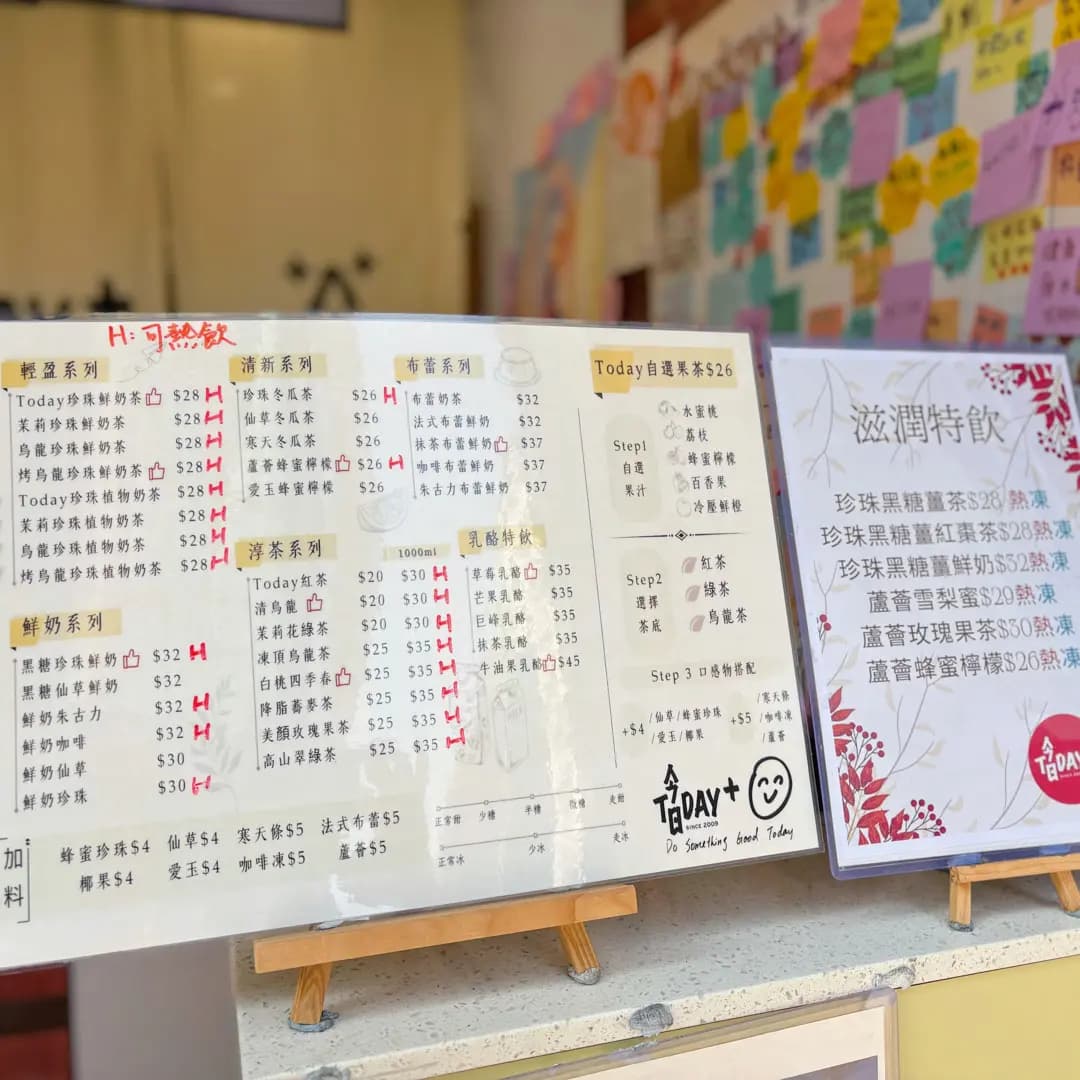 H:可熱飲
輕盈系列
Today珍珠鮮奶茶 $28 H
茉莉珍珠鮮奶茶 $28 H
烏龍珍珠鮮奶茶 $28 H
烤烏龍珍珠鮮奶茶 $28 H
Today珍珠植物奶茶 $28 H
茉莉珍珠植物奶茶 $28 H
烏龍珍珠植物奶茶 $28 H
烤烏龍珍珠植物奶茶 $28 H
鮮奶系列
黑糖珍珠鮮奶 $32 H
黑糖仙草鮮奶 $32
鮮奶朱古力 $32 H
鮮奶咖啡 $32 H
鮮奶仙草 $30
鮮奶珍珠 $30 H
清新系列
珍珠冬瓜茶 $26 H
仙草冬瓜茶 $26
寒天冬瓜茶 $26
蘆薈蜂蜜檸檬 $26 H
愛玉蜂蜜檸檬 $26
淳茶系列 1000ml
Today紅茶 $20 $30 H
清烏龍 $20 $30 H
茉莉花綠茶 $20 $30 H
凍頂烏龍茶 $25 $35 H
白桃四季春 $25 $35 H
降脂蕎麥茶 $25 $35 H
美顏玫瑰果茶 $25 $35 H
高山翠綠茶 $25 $35 H
布蕾系列
布蕾奶茶 $32
法式布蕾鮮奶 $32
抹茶布蕾鮮奶 $37
咖啡布蕾鮮奶 $37
朱古力布蕾鮮奶 $37
乳酪特飲
草莓乳酪 $35
芒果乳酪 $35
巨峰乳酪 $35
抹茶乳酪 $35
牛油果乳酪 $45
Today自選果茶$26
Step1
自選
果汁
水蜜桃
荔枝
蜂蜜檸檬
百香果
冷壓鮮橙
Step2
選擇
茶底
紅茶
綠茶
烏龍茶
Step 3 口感物搭配
+$4 /仙草/蜂蜜珍珠
/愛玉/椰果
+$5 /寒天條
/咖啡凍
/蘆薈
加料
蜂蜜珍珠$4 仙草$4 寒天條$5 法式布蕾$5
椰果$4 愛玉$4 咖啡凍$5 蘆薈$5
正常甜 少糖 半糖 微糖 走甜
正常冰 少冰 走冰
今日
TODAY+
SINCE 2009
Do Something Good Today
滋潤特飲
珍珠黑糖薑茶$28 熱凍
珍珠黑糖薑紅棗茶$28熱凍
珍珠黑糖薑鮮奶$32熱凍
蘆薈雪梨蜜$29熱凍
蘆薈玫瑰果茶$30熱凍
蘆薈蜂蜜檸檬$26熱凍
今日
TODAY
SINCE 2009